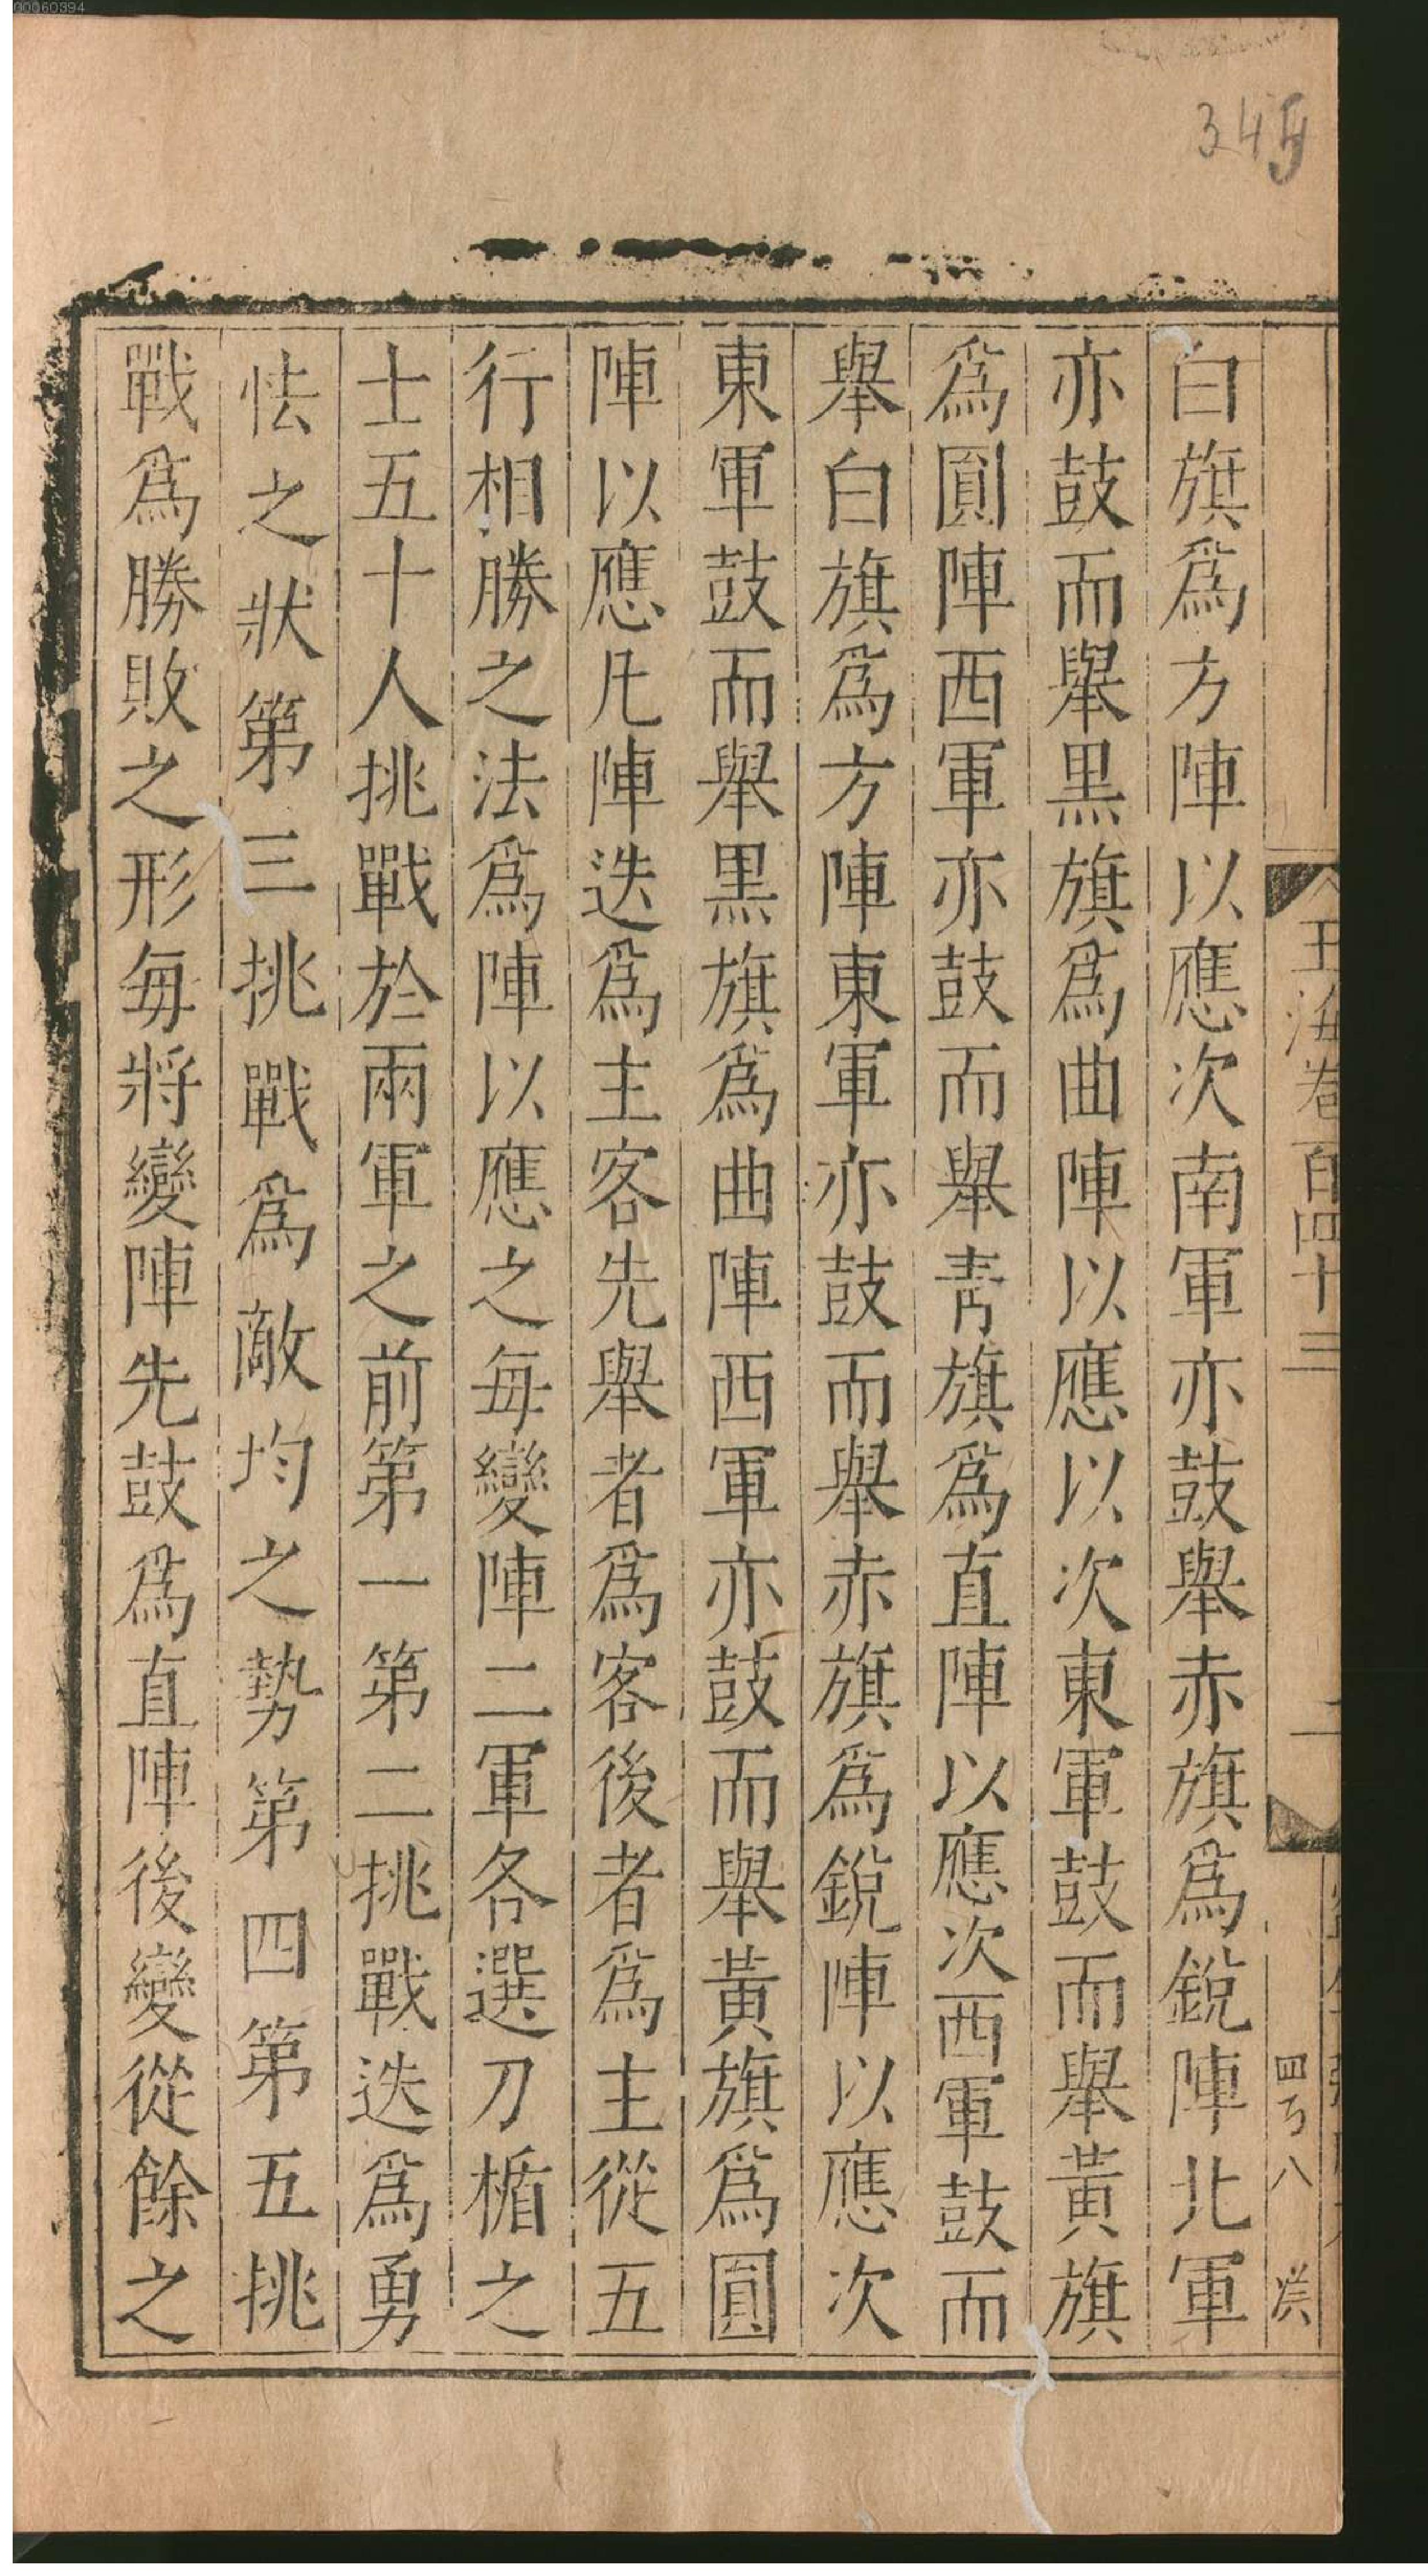 00060394
345
玉海卷百四十三
二
白旗爲方陣以應次南軍亦鼓舉赤旗爲銳陣北軍
亦鼓而舉黒旗爲曲陣以應以次東軍鼓而舉黃旗
爲圓陣西軍亦鼓而舉靑旗爲直陣以應次西軍鼓而
舉白旗爲方陣東軍亦鼓而舉赤旗爲銳陣以應次
東軍鼓而舉黒旗爲曲陣西軍亦鼓而舉黃旗爲圓
陣以應凡陣迭爲主客先舉者爲客後者爲主從五
行相勝之法爲陣以應之每變陣二軍各選刀楯之
士五十人挑戰於兩軍之前第一第二挑戰迭爲勇
怯之狀第三挑戰爲敵均之勢第四第五挑
戰爲勝敗之形每將變陣先鼓爲直陣後變從餘之